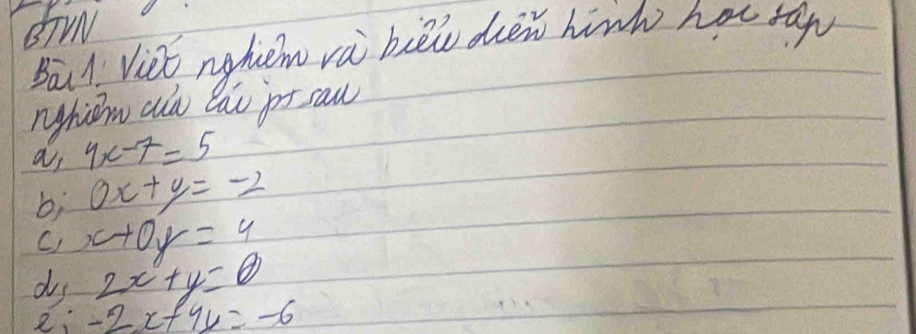 BTVN
Bài 1: Viết nghiệm và biểu diễn hình học tập
nghiệm của các pt sau
a, 4x-7=5
b; 0x+y=-2
c, x+0y=4
d, 2x+y=0
e; -2x+4y=-6